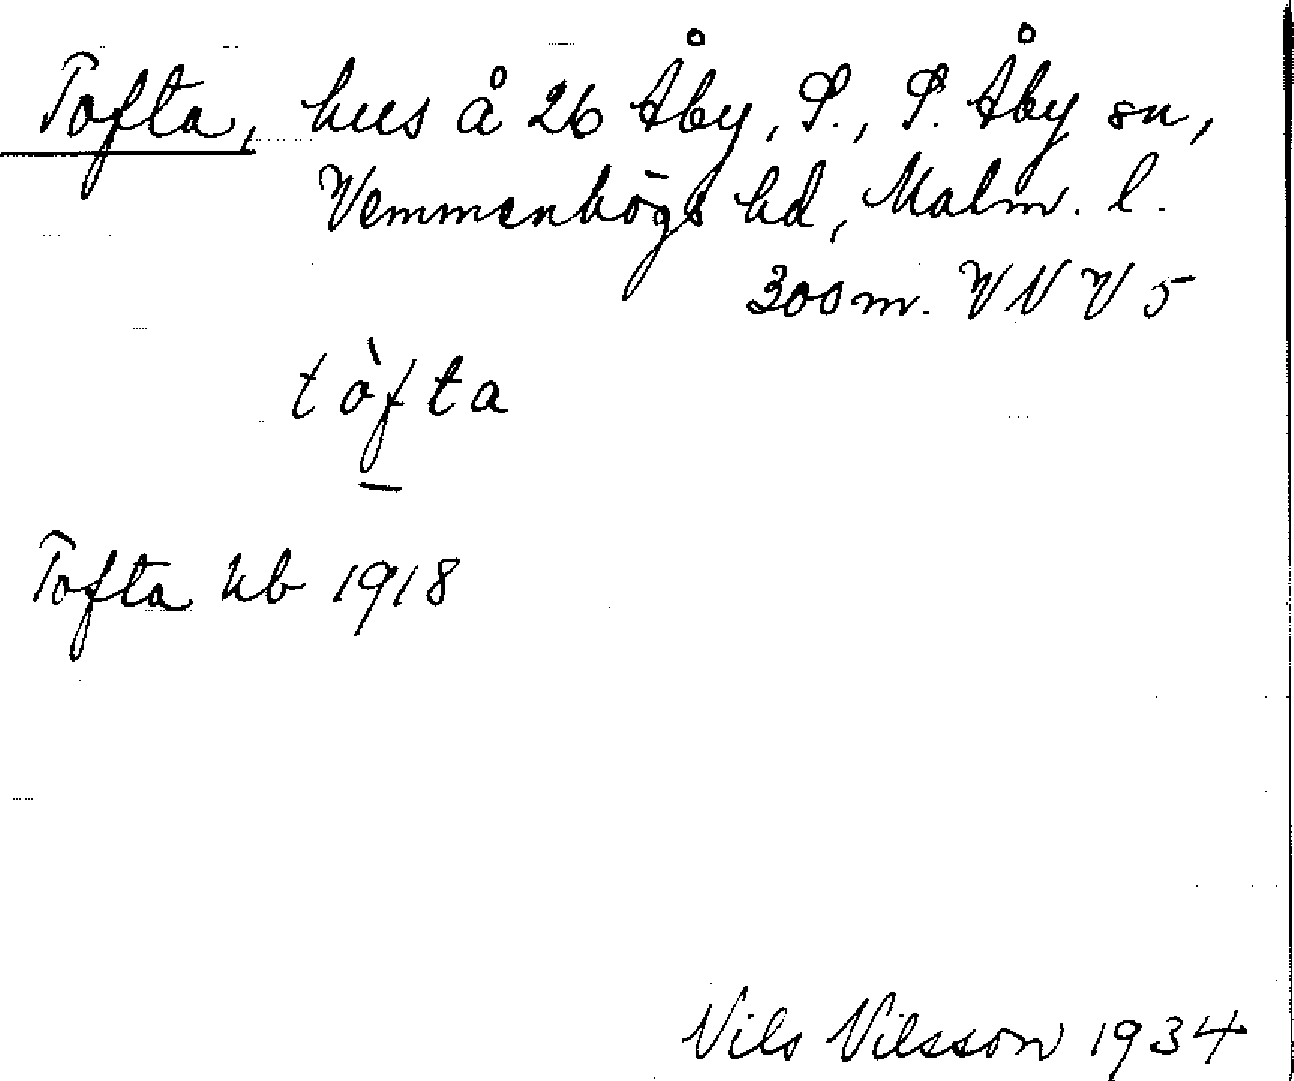 Tofta, hus å 26 Åby, S., S. Åby sn,
Vemmenhögs hd, Malm. l.
300 m. VNV 5
tòfta
Tofta kb 1918
Nils Nilsson 1934